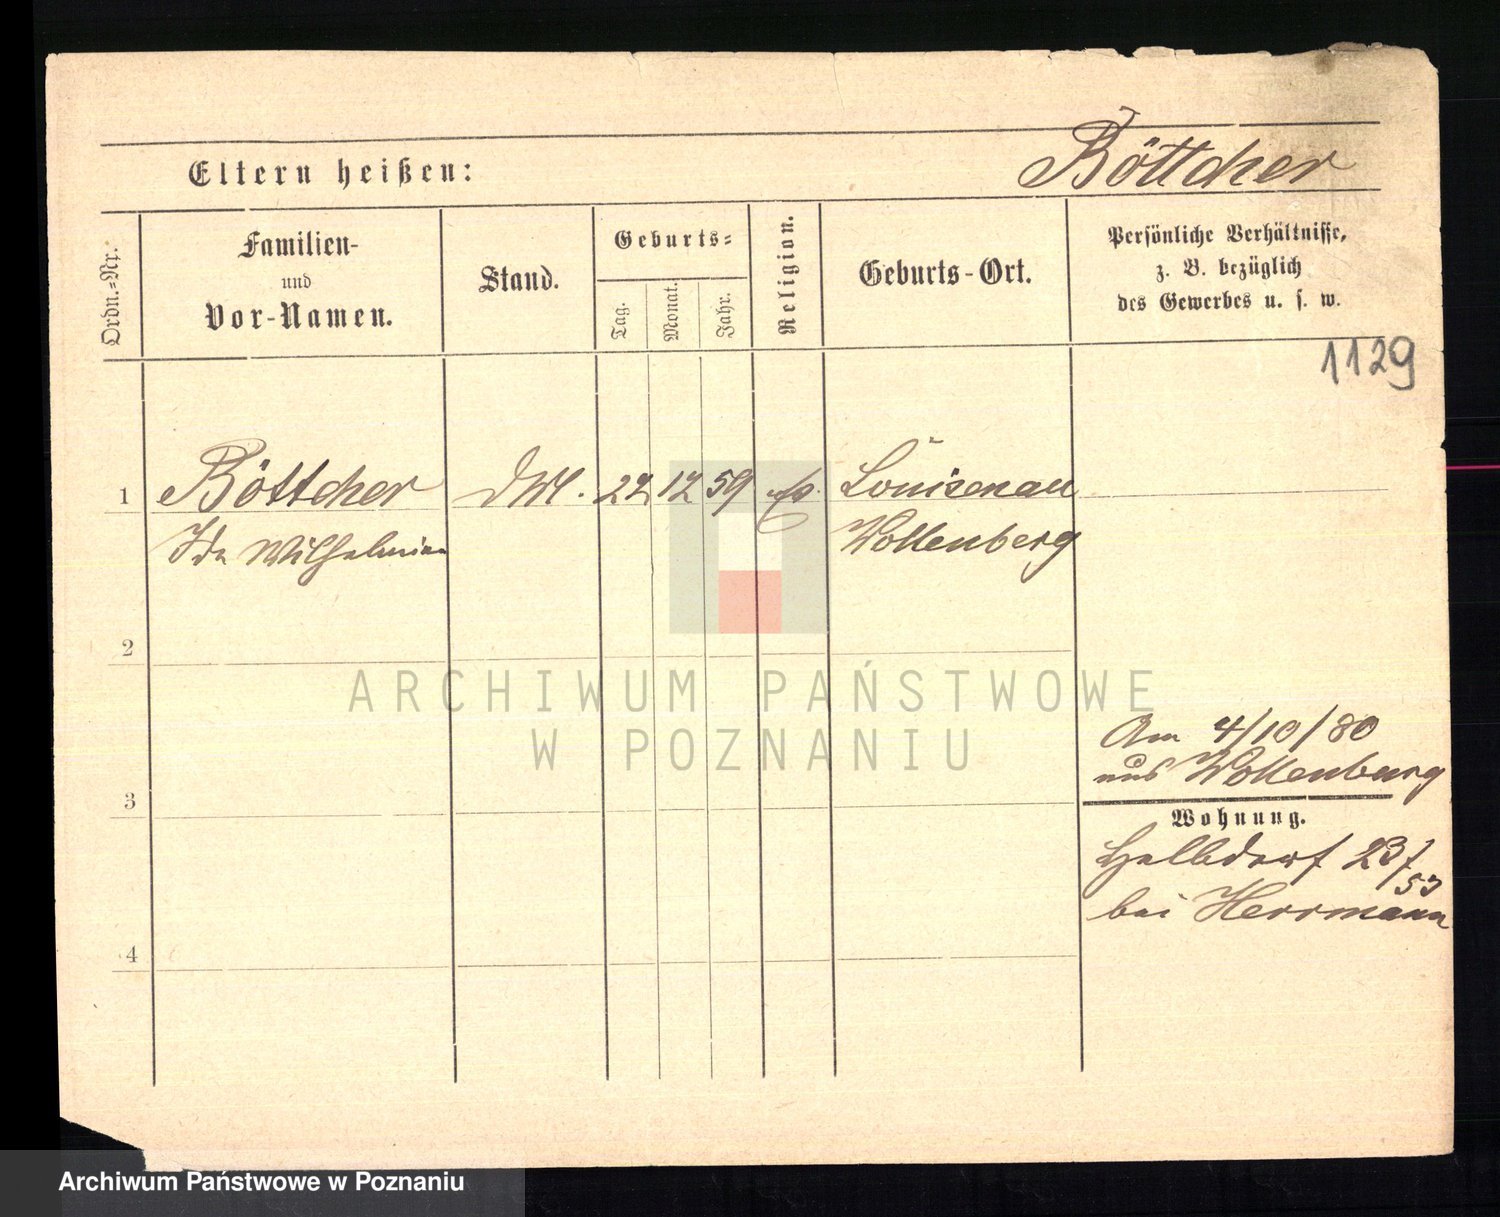 Böttcher
Eltern heißen:
Ordn.-Nr.
Familien-
und
Vor-Namen.
Stand.
Geburts-
Tag.
Monat.
Jahr.
Religion.
Geburts-Ort.
Persönliche Verhältnisse,
z. B. bezüglich
des Gewerbes u. s. w.
1129
1 Böttcher 22 12 59 Louisenau
Ida Wilhelmine Wollenberg
2
ARCHIWUM PAŃSTWOWE
W POZNANIU
Am 4/10/80
aus Wollenberg
3
Wohnung.
Halbdorf 23/
bei Herrmann
4
Archiwum Państwowe w Poznaniu